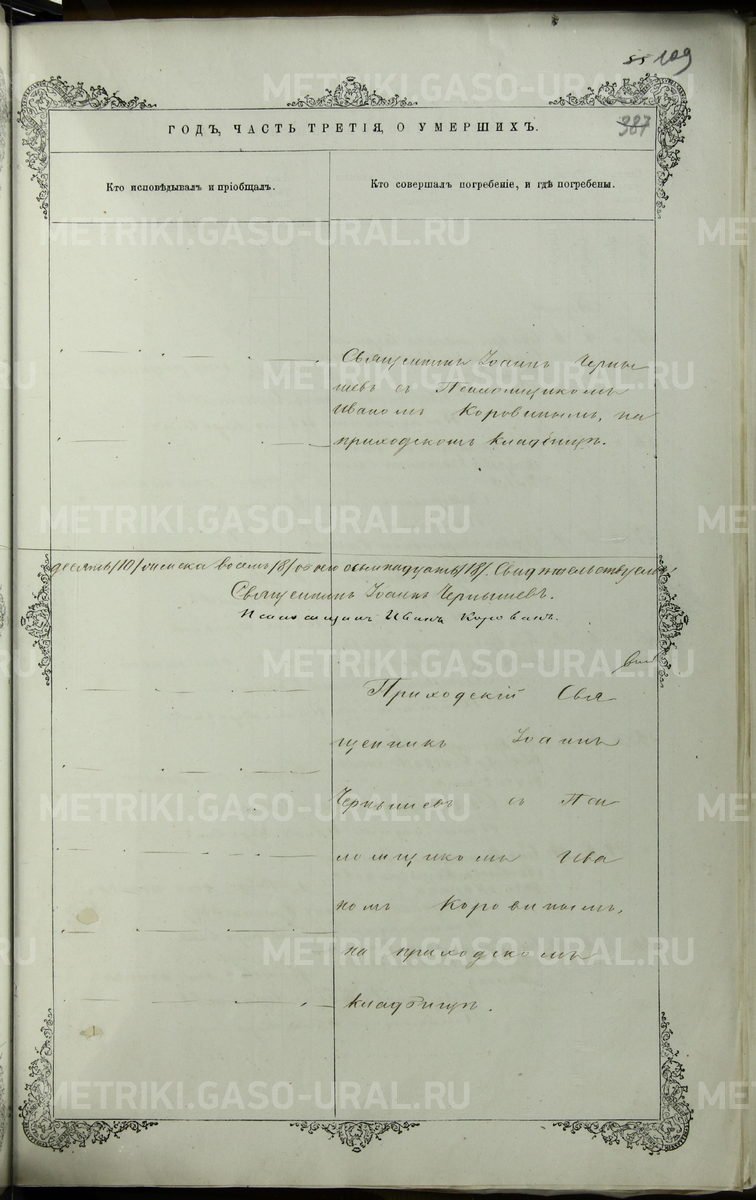 109
387
ГОДЪ, ЧАСТЬ ТРЕТІЯ, О УМЕРШИХЪ.
Кто исповѣдывалъ и пріобщалъ.
Кто совершалъ погребеніе, и гдѣ погребены.
Священникъ Іоаннъ Черны
шевъ съ Псаломщикомъ
Иваномъ Коровинымъ, на
приходскомъ кладбищѣ.
десять /10/ женска восемь /8/ обоего осьмнадцать /18/. Свидѣтельствуемъ:
Священникъ Іоаннъ Чернышевъ.
Псаломщикъ Иванъ Коровинъ.
Приходскій Свя
щенникъ Іоаннъ
Чернышевъ съ Пса
ломщикомъ Ива
номъ Коровинымъ,
на приходскомъ
кладбищѣ.
METRIKI.GASO-URAL.RU